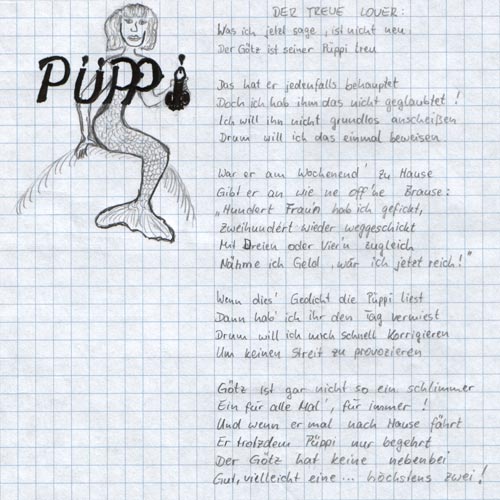 DER TREUE LOVER:
Was ich jetzt sage, ist nicht neu:
Der Götz ist seiner Püppi treu
Das hat er jedenfalls behauptet
Doch ich hab ihm das nicht geglaubtet!
Ich will ihn nicht grundlos anscheißen
Drum will ich das einmal beweisen
War er am Wochenend' zu Hause
Gibt er an wie ne off'ne Brause:
„Hundert Frau'n hab ich gefickt,
Zweihundert wieder weggeschickt
Mit Dreien oder Vier'n zugleich
Nähme ich Geld, wär ich jetzt reich!"
Wenn dies' Gedicht die Püppi liest
Dann hab' ich ihr den Tag vermiest
Drum will ich mich schnell korrigieren
Um keinen Streit zu provozieren
Götz ist gar nicht so ein schlimmer
Ein für alle Mal', für immer!
Und wenn er mal nach Hause fährt
Er trotzdem Püppi nur begehrt
Der Götz hat keine nebenbei
Gut, vielleicht eine... höchstens zwei!
PÜPPi